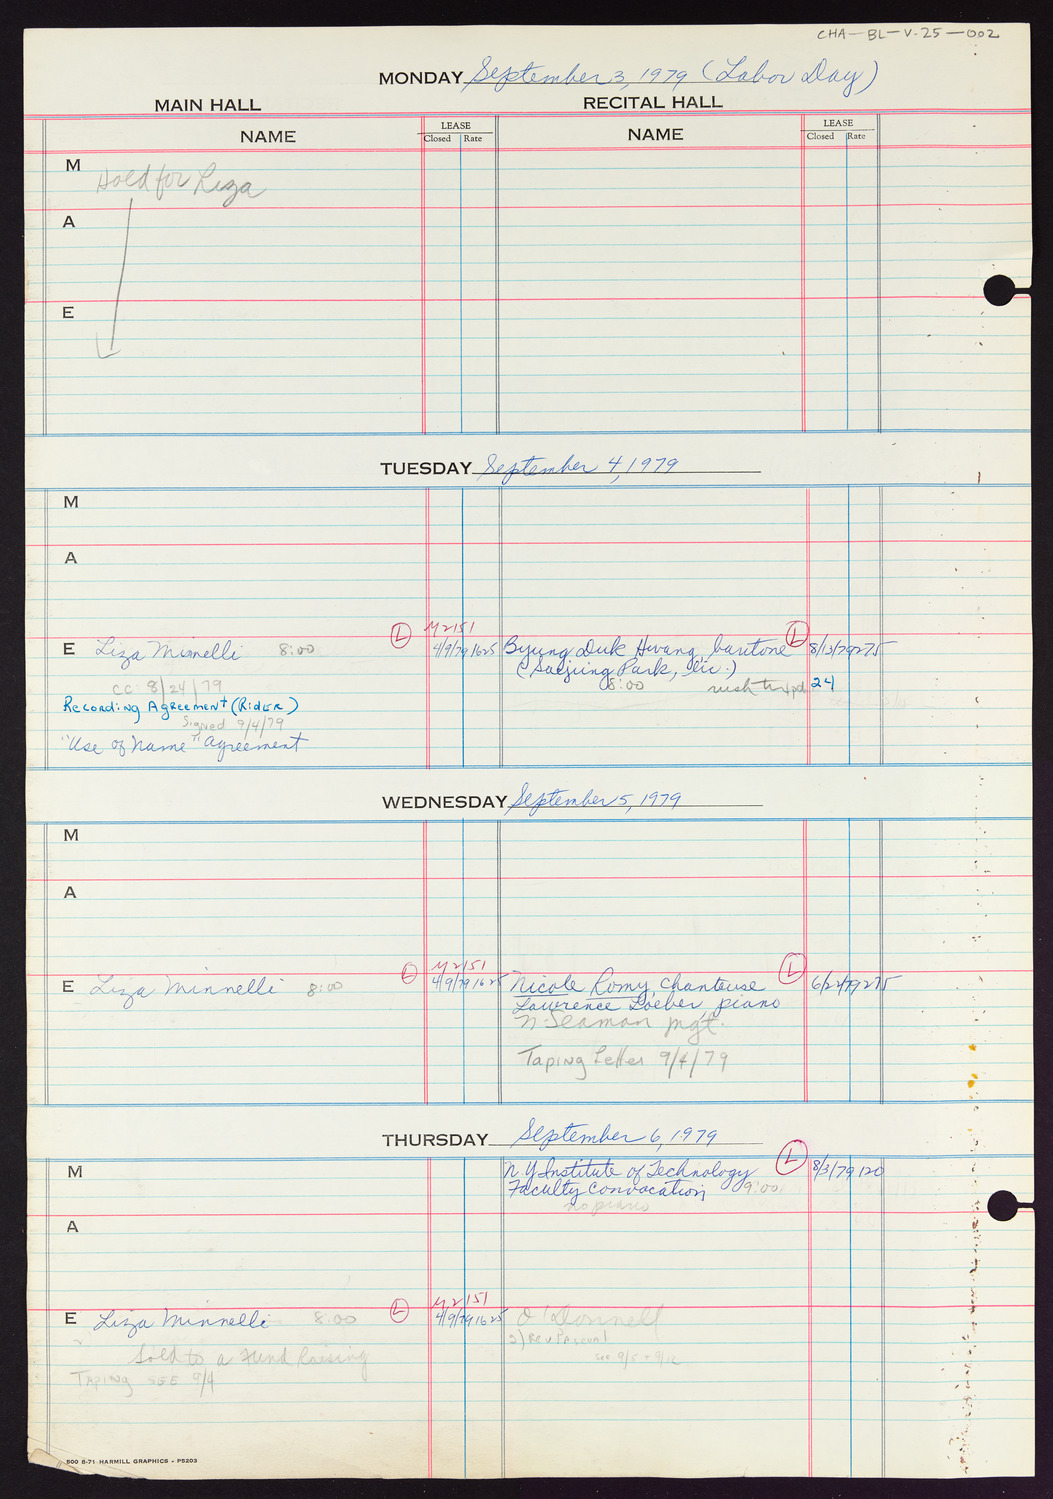 CHA-BL-V-25-002
MONDAY September 3, 1979 (Labor Day)
MAIN HALL RECITAL HALL
NAME LEASE Closed Rate NAME LEASE Closed Rate
M
Hold for Liza
A
E
TUESDAY September 4, 1979
M
A
E Liza Minnelli 8:00 L M2151 4/9/79 1625 Byung Duk Hwang, baritone L 8/13/79 275
(Saejung Park, lic.)
8:00 24
CC 8/24/79
Recording Agreement (Rider)
Signed 9/4/79
"Use of Name" agreement
WEDNESDAY September 5, 1979
M
A
E Liza Minnelli 8:00 L M2151 4/9/79 1625 Nicole Romy, chanteuse L 6/22/79 275
Lawrence Loeber, piano
N. Seaman mgt.
Taping Letter 9/4/79
THURSDAY September 6, 1979
M N.Y. Institute of Technology L 8/3/79 120
Faculty Convocation 9:00
no piano
A
E Liza Minnelli 8:00 L M2151 4/9/79 1625 O'Donnell
2) Rev Pascual
see 9/5 + 9/12
Sold to a Fund Raising
Taping see 9/4
500 8-71 HARMILL GRAPHICS - P5203